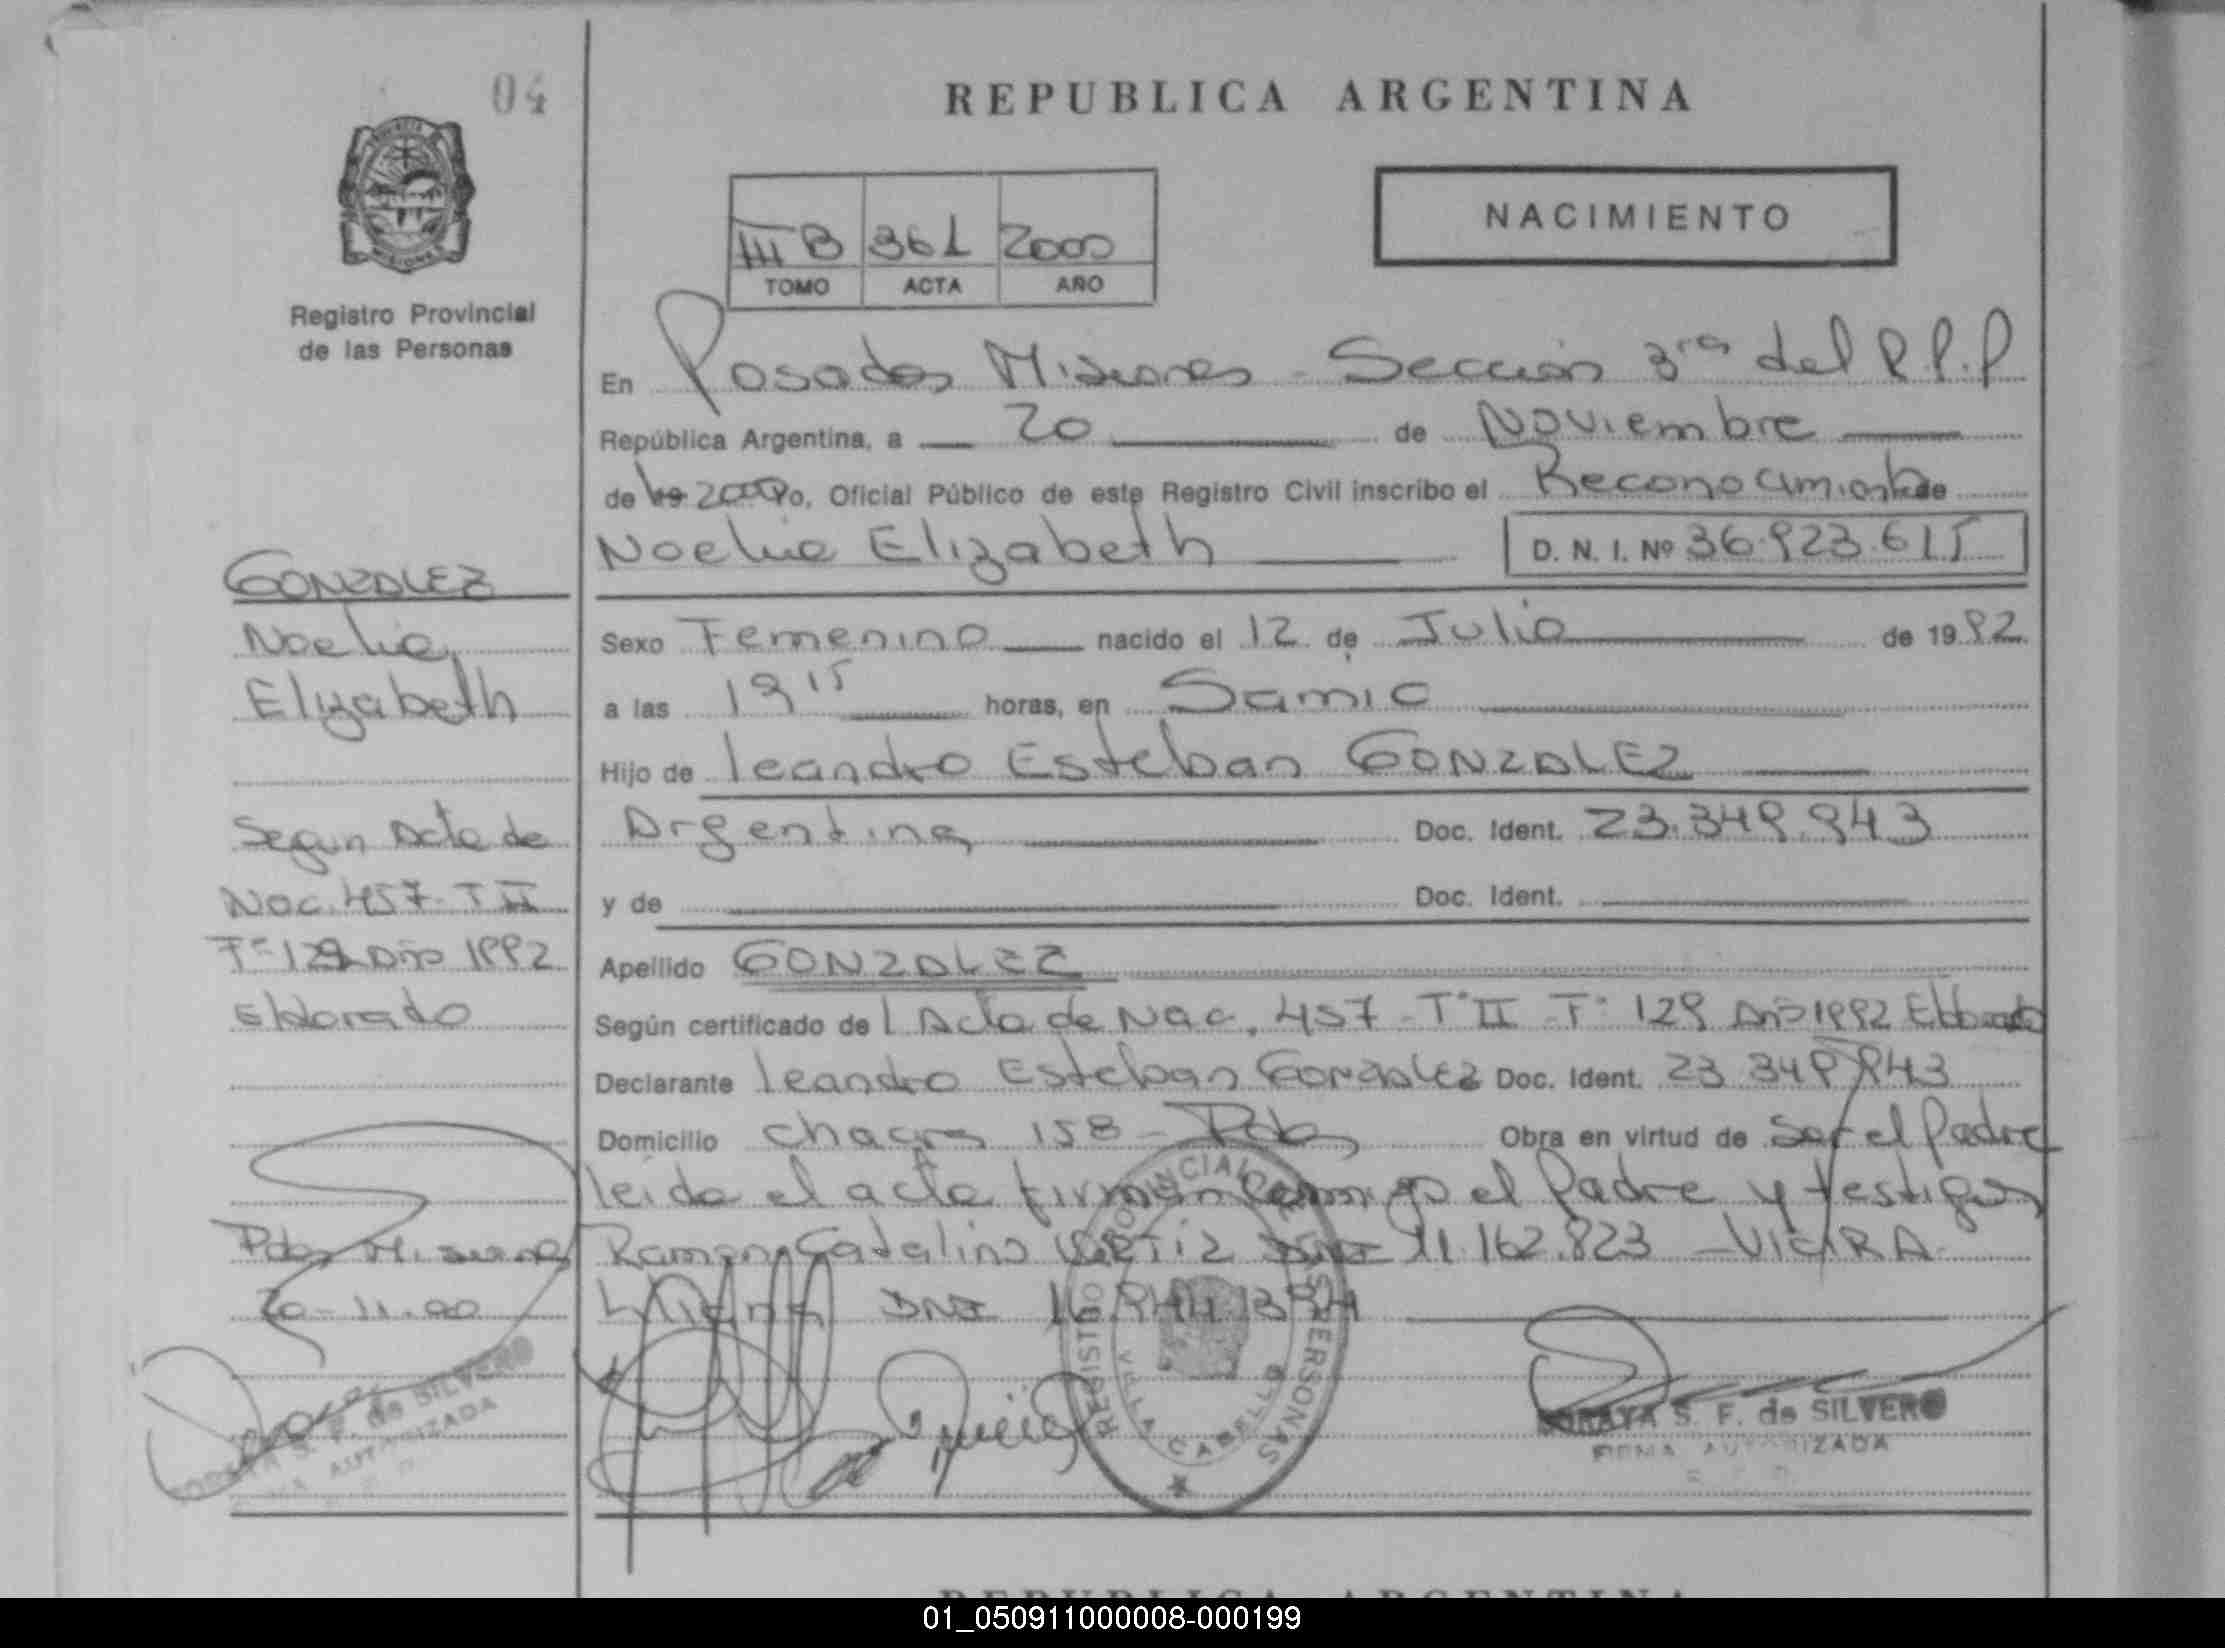 04
REPUBLICA ARGENTINA
NACIMIENTO
III B 361 2000
TOMO ACTA AÑO
Registro Provincial
de las Personas
En Posadas Misiones - Sección 3ra del R.P.P
República Argentina, a 20 de Noviembre
de 19 2000 Yo, Oficial Público de este Registro Civil inscribo el Reconocimiento de
Noelia Elizabeth D. N. I. Nº 36.923.615
GONZALEZ
Noelia
Elizabeth
Sexo Femenino nacido el 12 de Julio de 1992
a las 19 15 horas, en Samic
Hijo de Leandro Esteban GONZALEZ
Argentina Doc. Ident. 23.349.943
y de Doc. Ident.
Apellido GONZALEZ
Según certificado del Acta de Nac. 457 - Tº II - Fº 129 Año 1992 Eldorado
Declarante Leandro Esteban Gonzalez Doc. Ident. 23 349 943
Domicilio Chacra 158 - Pdas Obra en virtud de Ser el Padre
leida el acta firman conmigo el Padre y testigos
Ramon Catalino ORTIZ DNI 11.162.823 - VIEIRA
Liliana DNI
Segun Acta de
Nac. 457 - T II
Fº 129 Año 1992
Eldorado
Pdas Misiones
20-11-00
SORAYA S. F. de SILVERO
FIRMA AUTORIZADA
REGISTRO PROVINCIAL DE LAS PERSONAS
VILLA CABELLO
SORAYA S. F. de SILVERO
FIRMA AUTORIZADA
REPUBLICA ARGENTINA
01_050911000008-000199